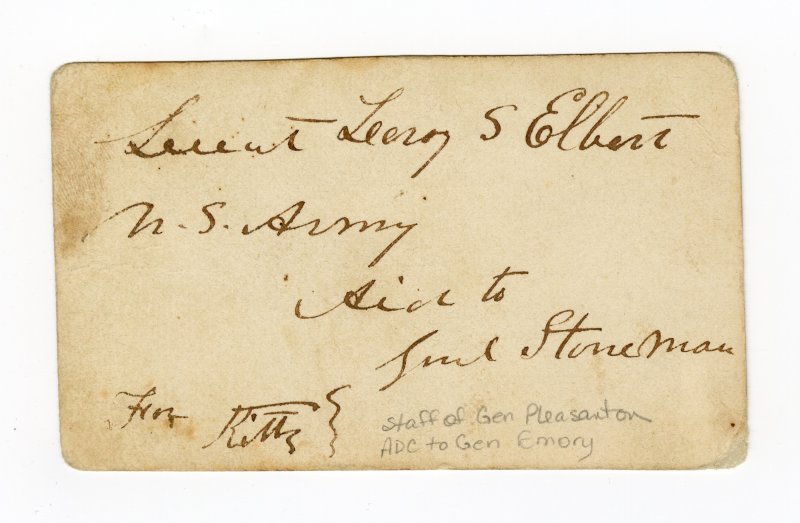 Lieut Leroy S Elbert
U.S. Army
Aid to
Genl Stoneman
For Kitty
Staff of Gen Pleasanton
ADC to Gen Emory